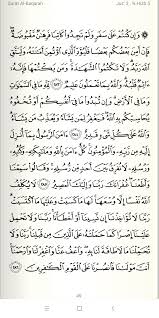 Surah Al-Baqarah
۞ وَإِن كُنتُمْ عَلَىٰ سَفَرٍ وَلَمْ تَجِدُوا۟ كَاتِبًا فَرِهَـٰنٌ مَّقْبُوضَةٌ
فَإِنْ أَمِنَ بَعْضُكُم بَعْضًا فَلْيُؤَدِّ ٱلَّذِى ٱؤْتُمِنَ أَمَـٰنَتَهُۥ وَلْيَتَّقِ
ٱللَّهَ رَبَّهُۥ وَلَا تَكْتُمُوا۟ ٱلشَّهَـٰدَةَ وَمَن يَكْتُمْهَا فَإِنَّهُۥٓ
ءَاثِمٌ قَلْبُهُۥ وَٱللَّهُ بِمَا تَعْمَلُونَ عَلِيمٌ ٢٨٣ لِّلَّهِ مَا فِى ٱلسَّمَـٰوَٰتِ
وَمَا فِى ٱلْأَرْضِ وَإِن تُبْدُوا۟ مَا فِىٓ أَنفُسِكُمْ أَوْ تُخْفُوهُ
يُحَاسِبْكُم بِهِ ٱللَّهُ فَيَغْفِرُ لِمَن يَشَآءُ وَيُعَذِّبُ مَن يَشَآءُ
وَٱللَّهُ عَلَىٰ كُلِّ شَىْءٍ قَدِيرٌ ٢٨٤ ءَامَنَ ٱلرَّسُولُ بِمَآ أُنزِلَ
إِلَيْهِ مِن رَّبِّهِۦ وَٱلْمُؤْمِنُونَ كُلٌّ ءَامَنَ بِٱللَّهِ وَمَلَـٰٓئِكَتِهِۦ وَكُتُبِهِۦ
وَرُسُلِهِۦ لَا نُفَرِّقُ بَيْنَ أَحَدٍ مِّن رُّسُلِهِۦ وَقَالُوا۟ سَمِعْنَا
وَأَطَعْنَا غُفْرَانَكَ رَبَّنَا وَإِلَيْكَ ٱلْمَصِيرُ ٢٨٥ لَا يُكَلِّفُ
ٱللَّهُ نَفْسًا إِلَّا وُسْعَهَا لَهَا مَا كَسَبَتْ وَعَلَيْهَا مَا ٱكْتَسَبَتْ
رَبَّنَا لَا تُؤَاخِذْنَآ إِن نَّسِينَآ أَوْ أَخْطَأْنَا رَبَّنَا وَلَا تَحْمِلْ
عَلَيْنَآ إِصْرًا كَمَا حَمَلْتَهُۥ عَلَى ٱلَّذِينَ مِن قَبْلِنَا رَبَّنَا وَلَا
تُحَمِّلْنَا مَا لَا طَاقَةَ لَنَا بِهِۦ وَٱعْفُ عَنَّا وَٱغْفِرْ لَنَا وَٱرْحَمْنَآ
أَنتَ مَوْلَىٰنَا فَٱنصُرْنَا عَلَى ٱلْقَوْمِ ٱلْكَـٰفِرِينَ ٢٨٦
49